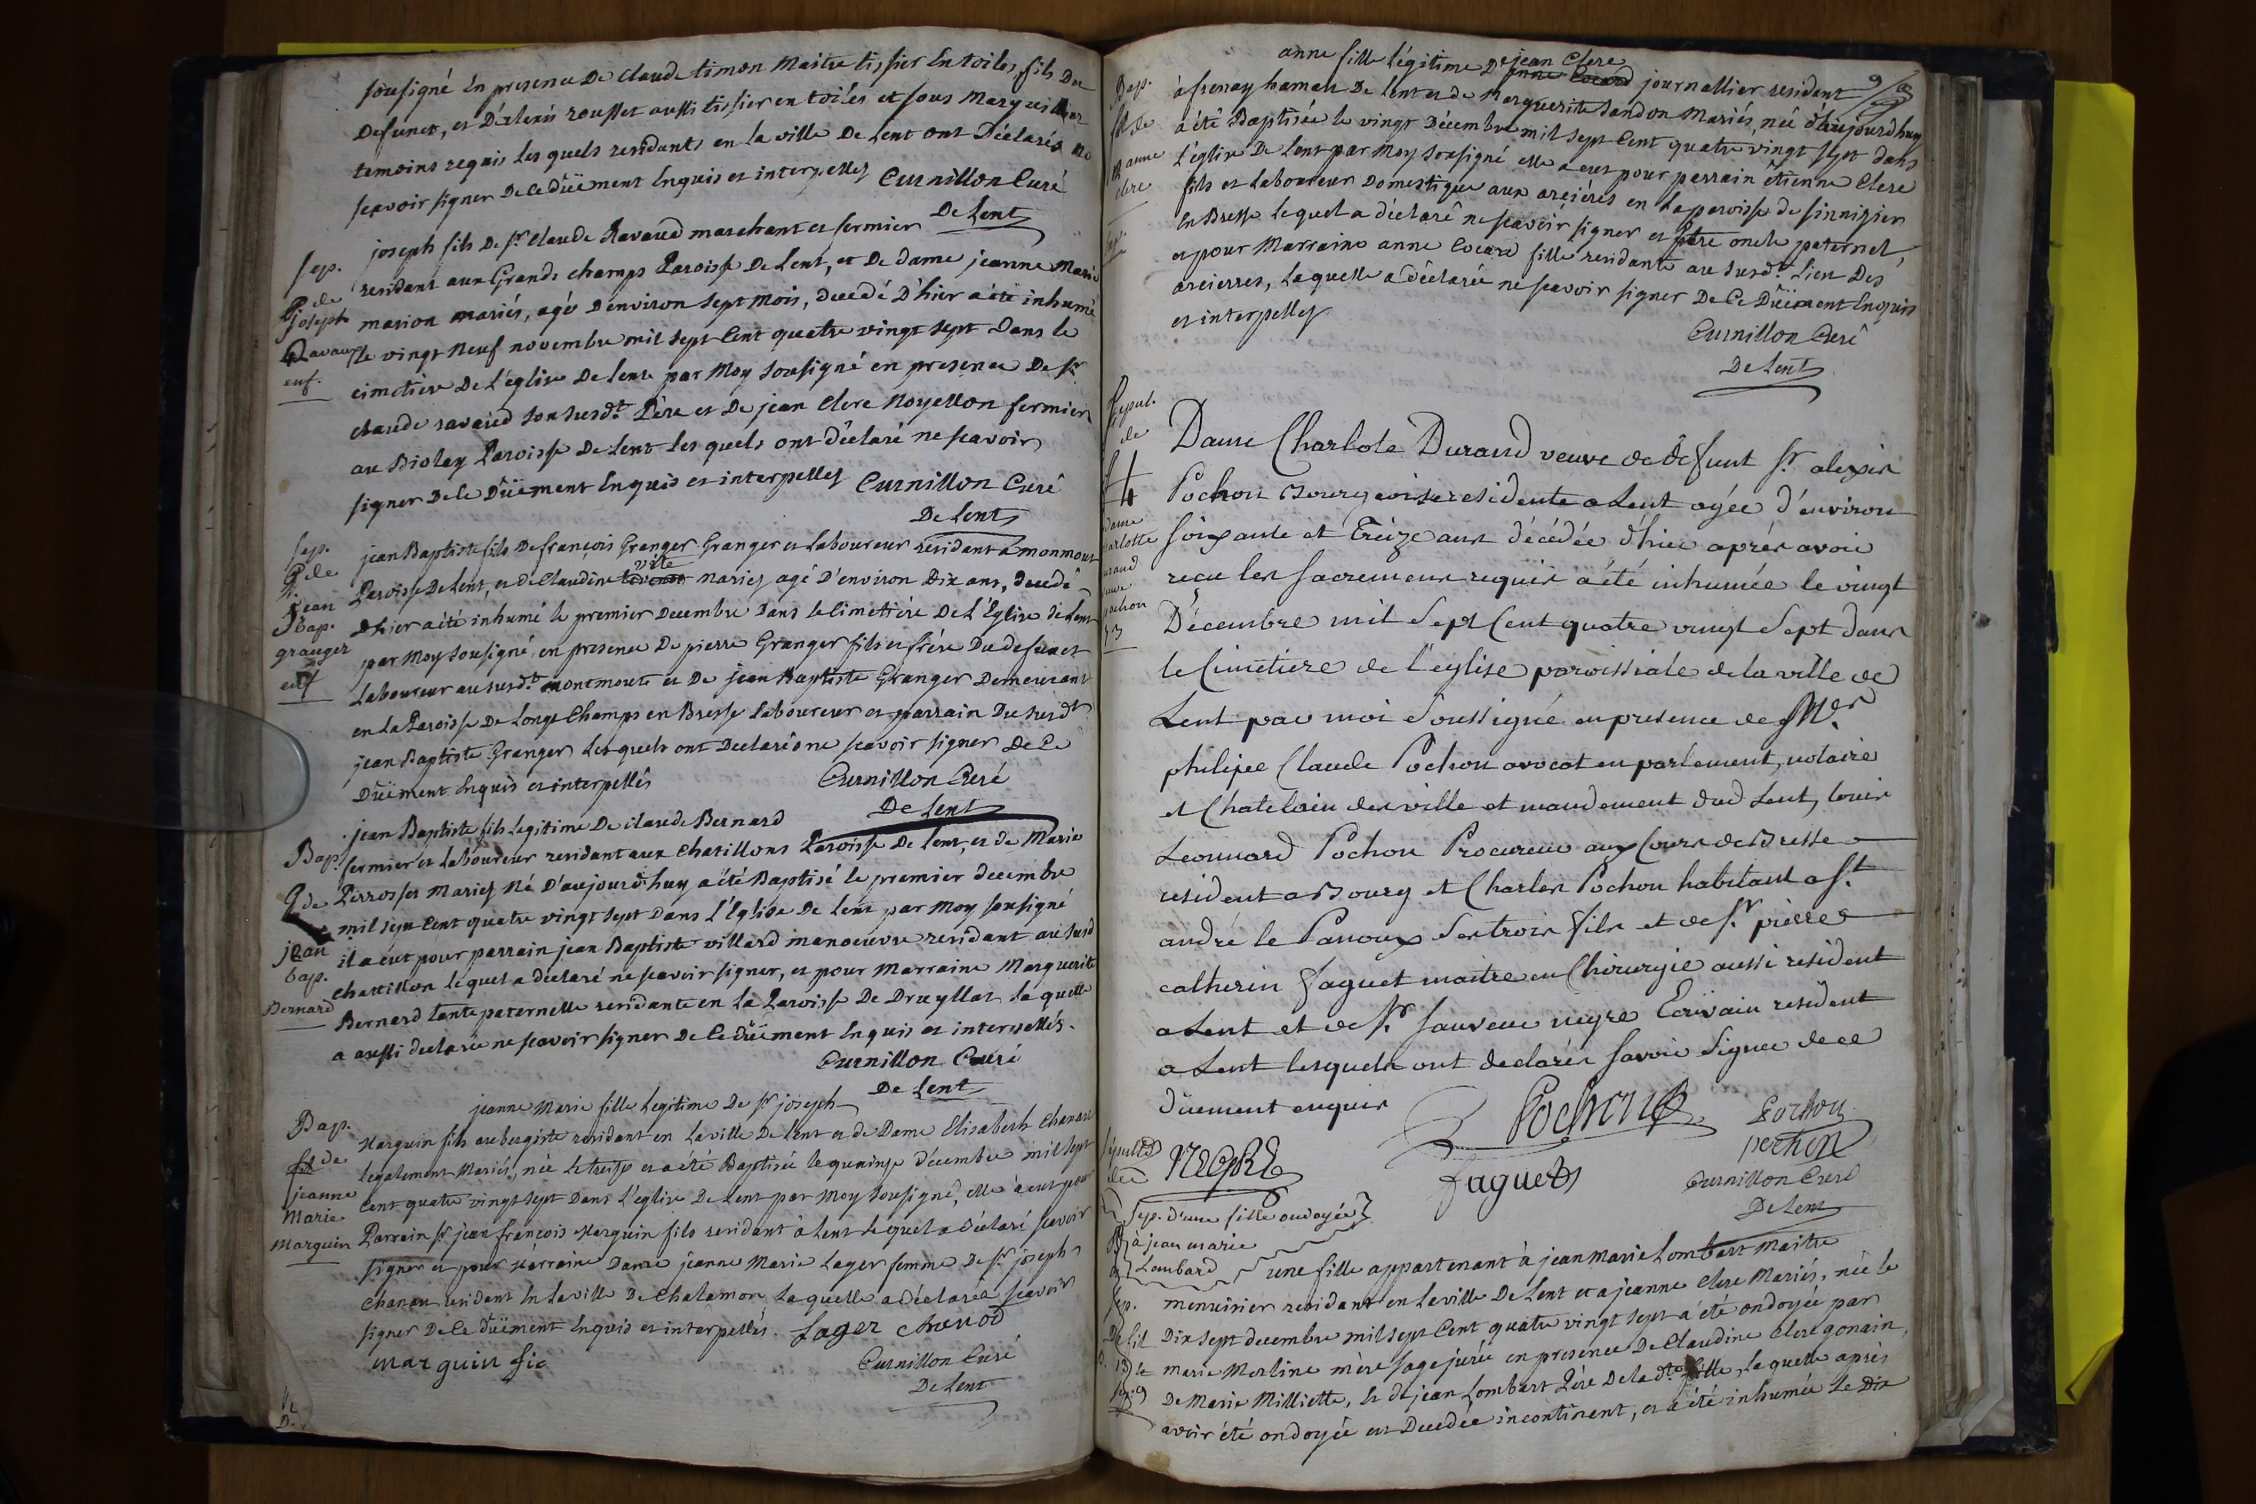 sousigné En presence De claude timon Maitre tissier En toiles, fils De
Defunct, et D'alexis rousset aussi tissier en toiles et sous Marguillier
temoins requis les quels residants en la ville De Lent ont Déclarés ne
scavoir signer De Ce Düement Enquis et interpellés Curnillon Curé
De Lent
joseph fils De sr Claude Ravaud marchant et fermier
residant aux Grands champs Paroisse De Lent, et De dame jeanne Marie
marion mariés, agé D'environ sept mois, decedé D'hier a été inhumé
le vingt Neuf novembre mil sept Cent quatre vingt sept Dans le
cimetière De L'église De Lent par Moy sousigné en presence De sr
claude ravaud son susdt Père et De jean Clerc Noyellon fermier
au Biolay Paroisse De Lent les quels ont Déclaré ne scavoir
signer De Ce Düement Enquis et interpellés Curnillon Curé
De Lent
Sep.
de
joseph
Ravaud
enf.
jean Baptiste fils De françois Granger Granger et Laboureur residant a monmout
vite
Paroisse De Lent, et de Claudine mariés agé D'environ Dix ans, Decedé
D'hier a été inhumé le premier Decembre Dans le Cimetière De L'Eglise de Lent
par Moy sousigné, en presence De pierre Granger fils et frére Du defunct
Laboureur au susdt montmout et De jean Baptiste Granger Demeurant
en La Paroisse De Longs Champs en Bresse Laboureur et parrain Du susdt
jean Baptiste Granger Les quels ont Declarés ne scavoir signer De Ce
Düement Enquis et interpellés Curnillon Curé
De Lent
Sep.
de
jean
Bap.
granger
enf
jean Baptiste fils Legitime De claude Bernard
fermier et Laboureur residant aux chatillons Paroisse De Lent, et de Marie
Perrosses Mariés Né D'aujourd'huy a été Baptisé le premier decembre
mil sept Cent quatre vingt sept Dans L'Eglise De Lent par Moy sousigné
il a eut pour parrain jean Baptiste villard manoeuvre residant au susd
chattillon le quel a déclaré ne scavoir signer, et pour Marraine Marguerite
Bernard tante paternelle residante en la Paroisse De Druyllat la quelle
a aussi declarée ne scavoir signer De Ce düement Enquis et interpellés.
Curnillon Curé
De Lent
Bap.
de
jean
bap.
Bernard
jeanne Marie fille Légitime De sr joseph
Marguin fils aubergiste residant en La ville De Lent et de Dame Elisabeth Chanod
legalement Mariés, née le treize et a été Baptisée le quainse décembre mil sept
Cent quatre vingt sept Dans L'eglise De Lent par Moy sousigné, elle a eut pour
Parrain sr jean françois Marguin fils residant à Lent le quel a Déclaré scavoir
signer et pour Marraine Dame jeanne Marie Lager femme De sr joseph
Chanod residant En La ville De Chalamont La quelle a Déclarée scavoir
signer De Ce düement Enquis et interpellés. Lager chanod
marguin fis Curnillon Curé
De Lent
Bap.
de
jeanne
Marie
Marguin
9
anne fille Légitime De jean Clerc
journallier residant
à frenay hameau De Lent et de Marguerite Dandon Mariés, née d'aujourd'huy
a été Baptisée le vingt Décembre mil sept Cent quatre vingt sept dans
L'église De Lent par Moy sousigné elle a eut pour parrain êtienne Clerc
fils et Laboureur Domestique aux arciéres en La paroisse de
En Bresse le quel a déclaré ne scavoir signer et frére oncle paternel,
et pour Marraine anne Cocard fille residante au susdt Lieu Des
arcierres, La quelle a déclarée ne scavoir signer De Ce Düement Enquis
et interpellés
Curnillon Curé
De Lent
Bap.
de
anne
clerc
Dame Charlote Durand veuve de défunt sr alexis
Pochon Bourgeoise residente a Lent agée d'environ
soixante et Treize ans décédée d'hier aprés avoir
reçu les sacremens requis a été inhumée le vingt
Décembre mil Sept Cent quatre vingt Sept dans
le Cimetiere de l'eglise paroissiale de la ville de
Lent par moi Soussigné en presence de
philipe Claude Pochon avocat en parlement, notaire
et Chatelain des ville et mandement dud Lent, louis
Leonnard Pochon Procureur aux Cours de Bresse
resident a Bourg et Charles Pochon habitant a st
andré le Panoux ses trois fils et de sr pierre
catherin faguet maitre en Chirurgie aussi resident
a Lent et de sr sauveur negre Ecrivain resident
a Lent lesquels ont declarés savoir Signer de ce
düement enquis
Pochon Pochon
pochon
NEGRE faguet Curnillon Curé
De Lent
Sepul.
de
Dame
Charlotte
Durand
veuve
pochon
73
Sep. d'une fille ondoyée
à jean marie
Lombard
une fille appartenant à jean Marie Lombart Maitre
menuisier residant en La ville De Lent et a jeanne Clerc Mariés, née le
Dix sept decembre mil sept Cent quatre vingt sept a été ondoyée par
marie Morline mère sage jurée en presence De Claudine Clerc gonain,
De Marie Milliette, et de jean Lombart Pére De la dte fille, la quelle après
avoir été ondoyée est Decedée incontinent, et a été inhumée le Dix